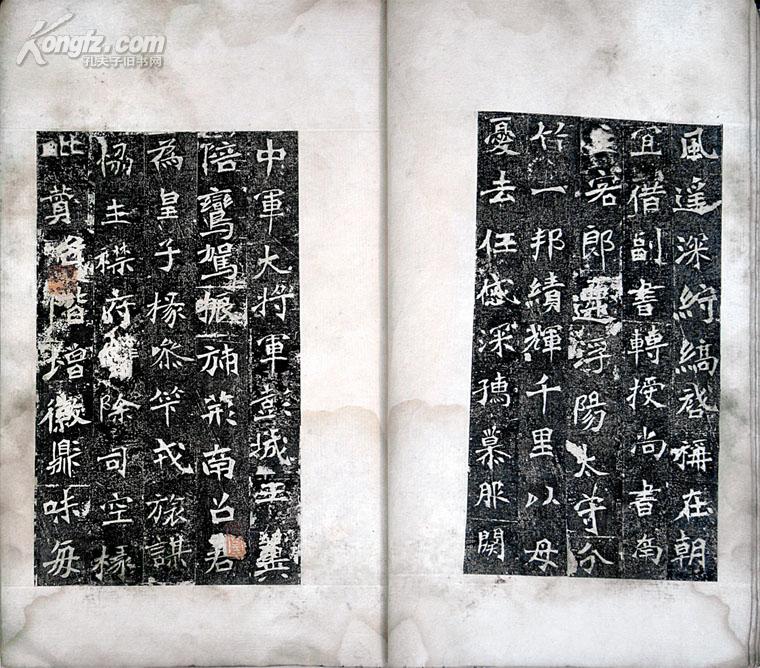 風遥深紵縞啓稱在朝
宜借副書轉授尚書南
主客郎遷浮陽太守分
竹一邦績輝千里以母
憂去任感深孺慕服闋
中軍大將軍彭城王翼
陪鸞駕振旆荊南召君
為皇子掾參竿戎旅謀
協主襟府除司空掾
賞階增徽鼎味每
Kongfz.com
孔夫子旧书网